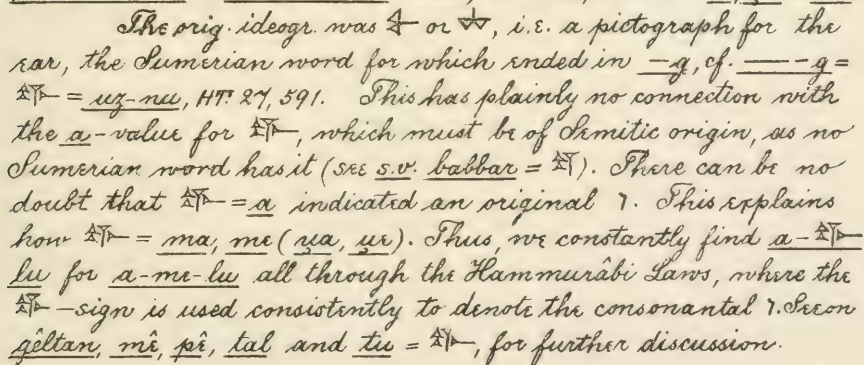 The orig. ideogr. was or , i.e. a pictograph for the
ear, the Sumerian word for which ended in —g, cf. ———-g =
𒉿 = uz-nu, HT. 27, 591. This has plainly no connection with
the a-value for 𒉿, which must be of Semitic origin, as no
Sumerian word has it (see s.v. babbar = 𒌓). There can be no
doubt that 𒉿 = a indicated an original ו. This explains
how 𒉿 = ma, me (u̯a, u̯e). Thus, we constantly find a-𒉿-
lu for a-me-lu all through the Hammurâbi Laws, where the
𒉿-sign is used consistently to denote the consonantal ו. See on
gêltan, mê, pê, tal and tu = 𒉿, for further discussion.